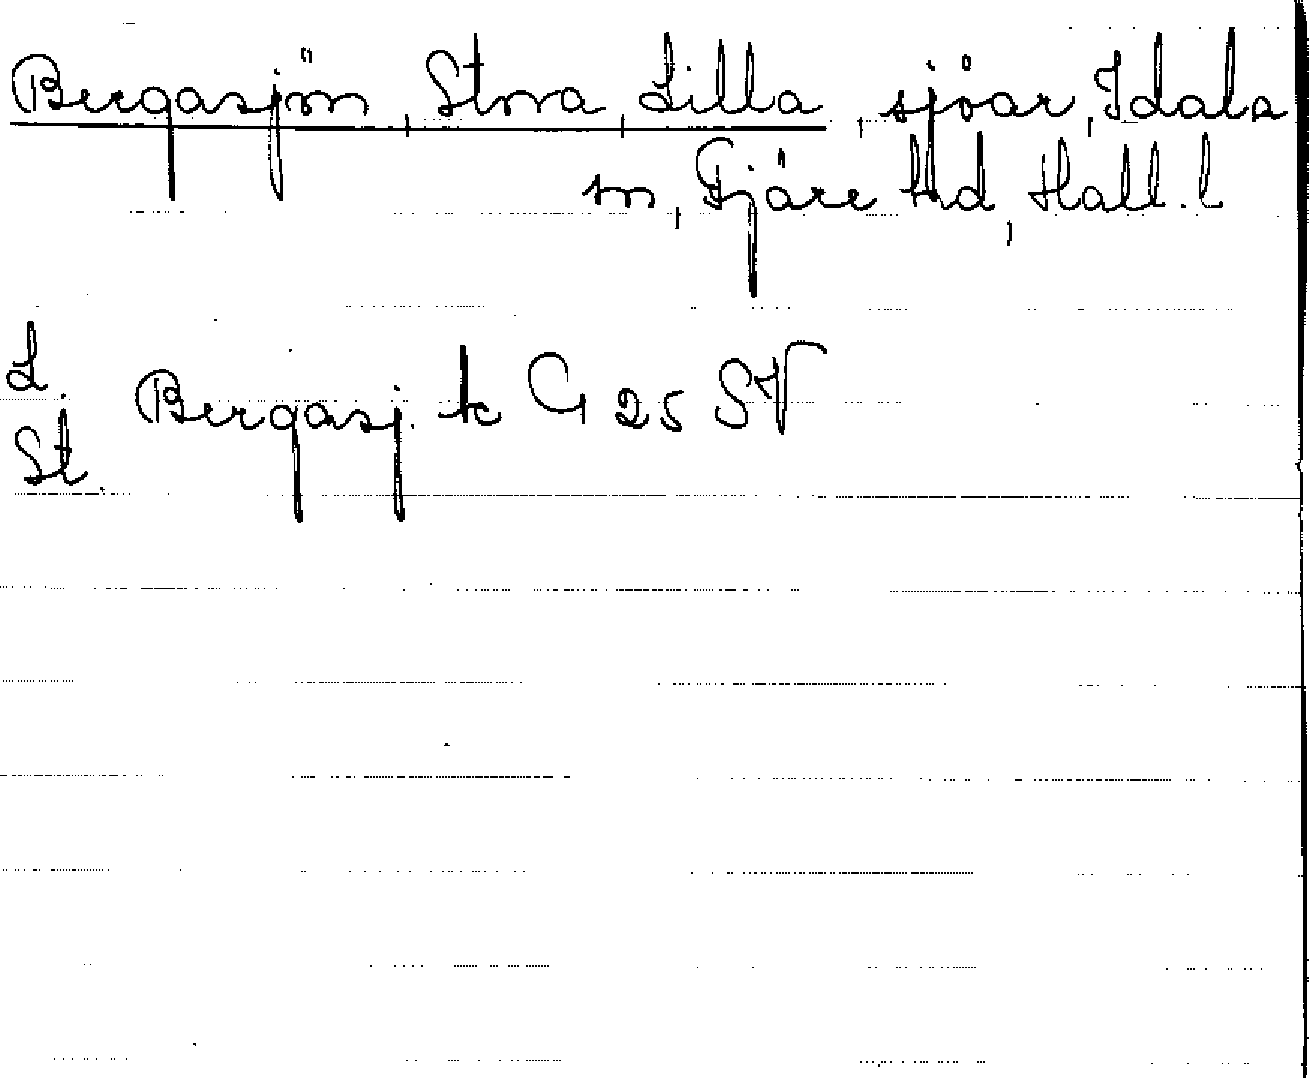 Bergasjön, Stora, Lilla, sjöar, Idala
sn, Fjäre hd, Hall. l
L.
Bergasj. tc G 25 SV
St.